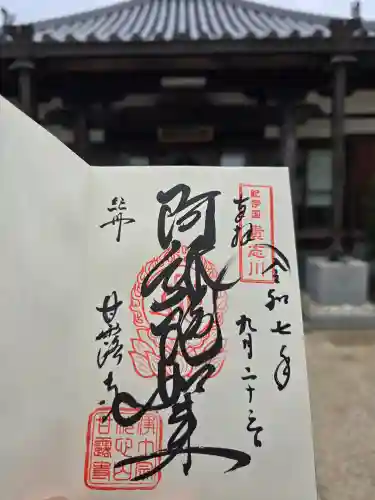 奉拝
紀伊国
貴志川
令和七年
九月二十三日
阿弥陀如来
甘露寺